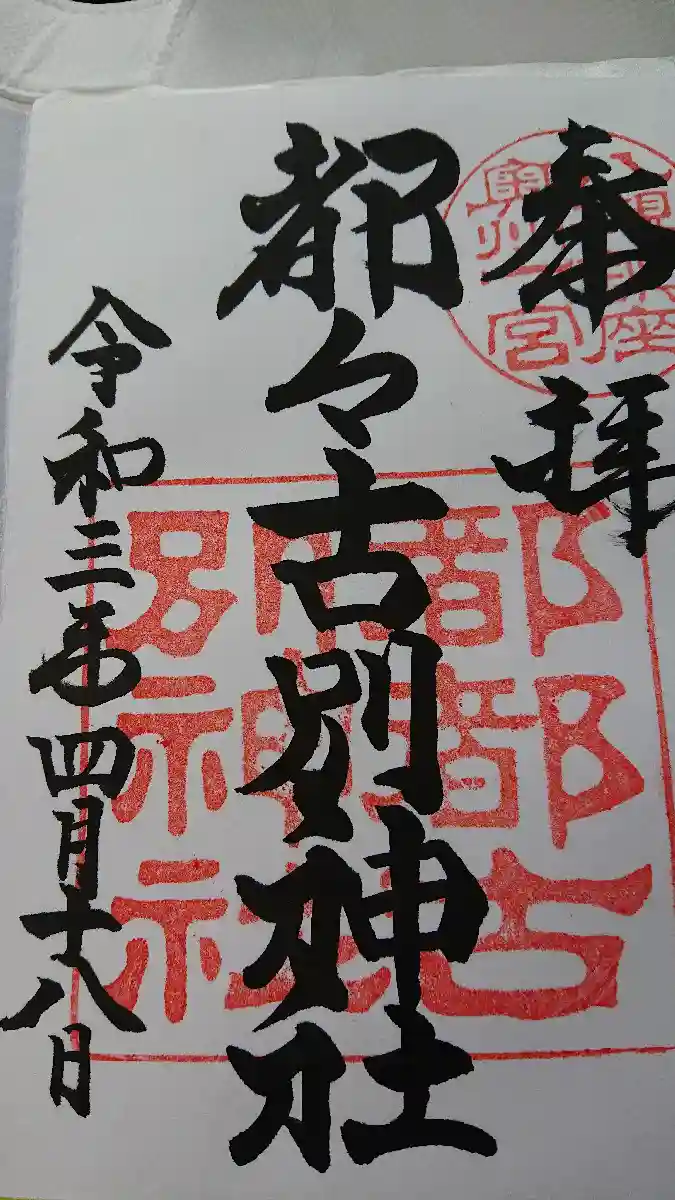 奉拝
奥州一宮
都々古別神社
都都古
別神社
令和三年四月十八日